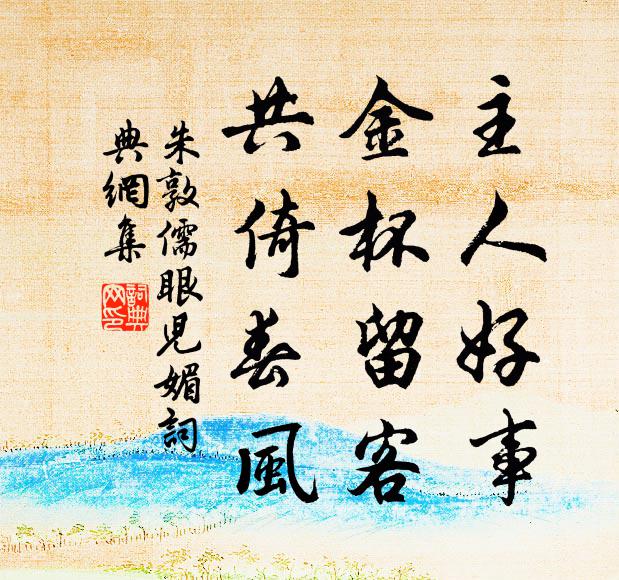 主人好事
金杯留客
共倚春風
朱敦儒眼兒媚詞
典網集
詞典網印